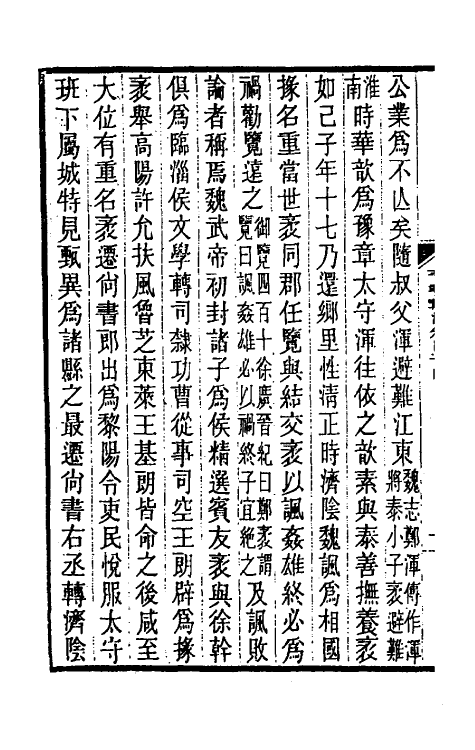 公業爲不亾矣隨叔父渾避難江東魏志鄭渾傳作渾將泰小子袤避難
淮南時華歆爲豫章太守渾往依之歆素與泰善撫養袤
如己子年十七乃還鄉里性淸正時濟陰魏諷爲相國
掾名重當世袤同郡任覽與結交袤以諷姦雄終必爲
禍勸覽遠之御覽四百十徐廣晉紀曰鄭袤謂覽曰諷姦雄必以禍終子宜絶之及諷敗
論者稱焉魏武帝初封諸子爲侯精選賓友袤與徐幹
俱爲臨淄侯文學轉司隸功曹從事司空王朗辟爲掾
袤舉高陽許允扶風魯芝東萊王基朗皆命之後咸至
大位有重名袤遷尙書郎出爲黎陽令吏民悅服太守
班下屬城特見甄異爲諸縣之最遷尙書右丞轉濟陰